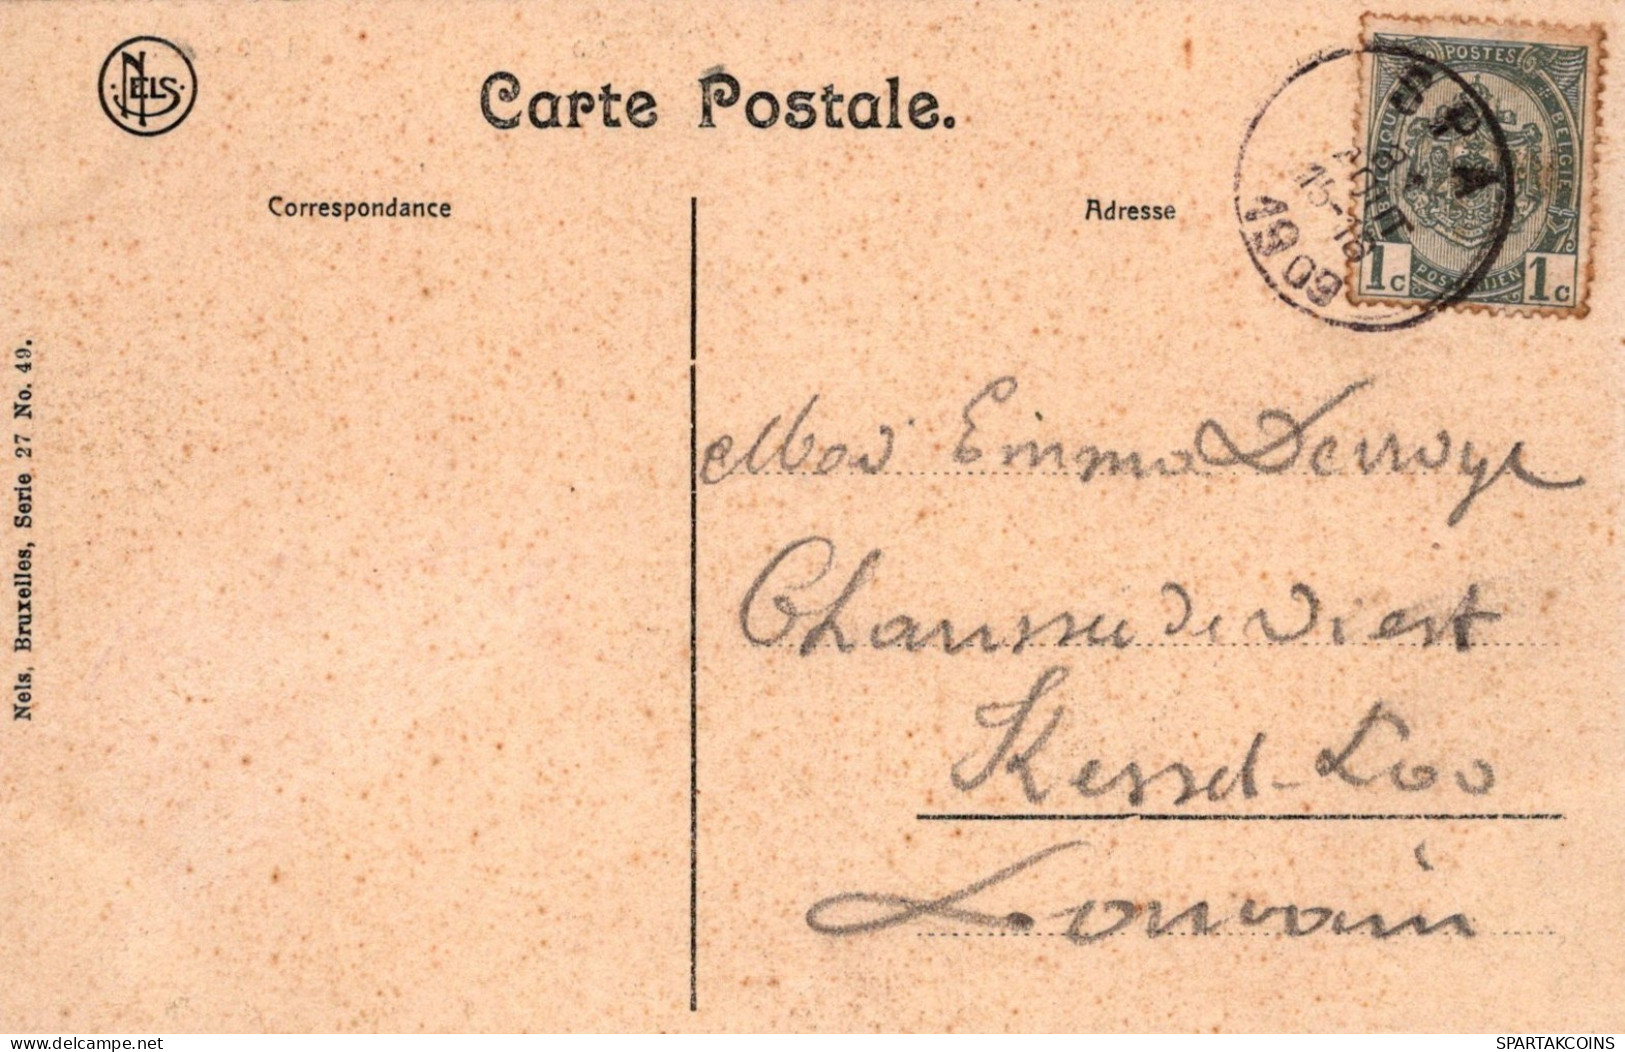 NELS
Carte Postale.
Correspondance
Adresse
POSTES
BELGIQUE
BELGIE
POSTERIJEN
1c 1c
SPA
8
AOUT
15-16
1909
Nels, Bruxelles, Serie 27 No. 49.
Emma Derroye
Chaussée de Diest
Kessel-Loo
Louvain
delcampe.net
SPARTAKCOINS